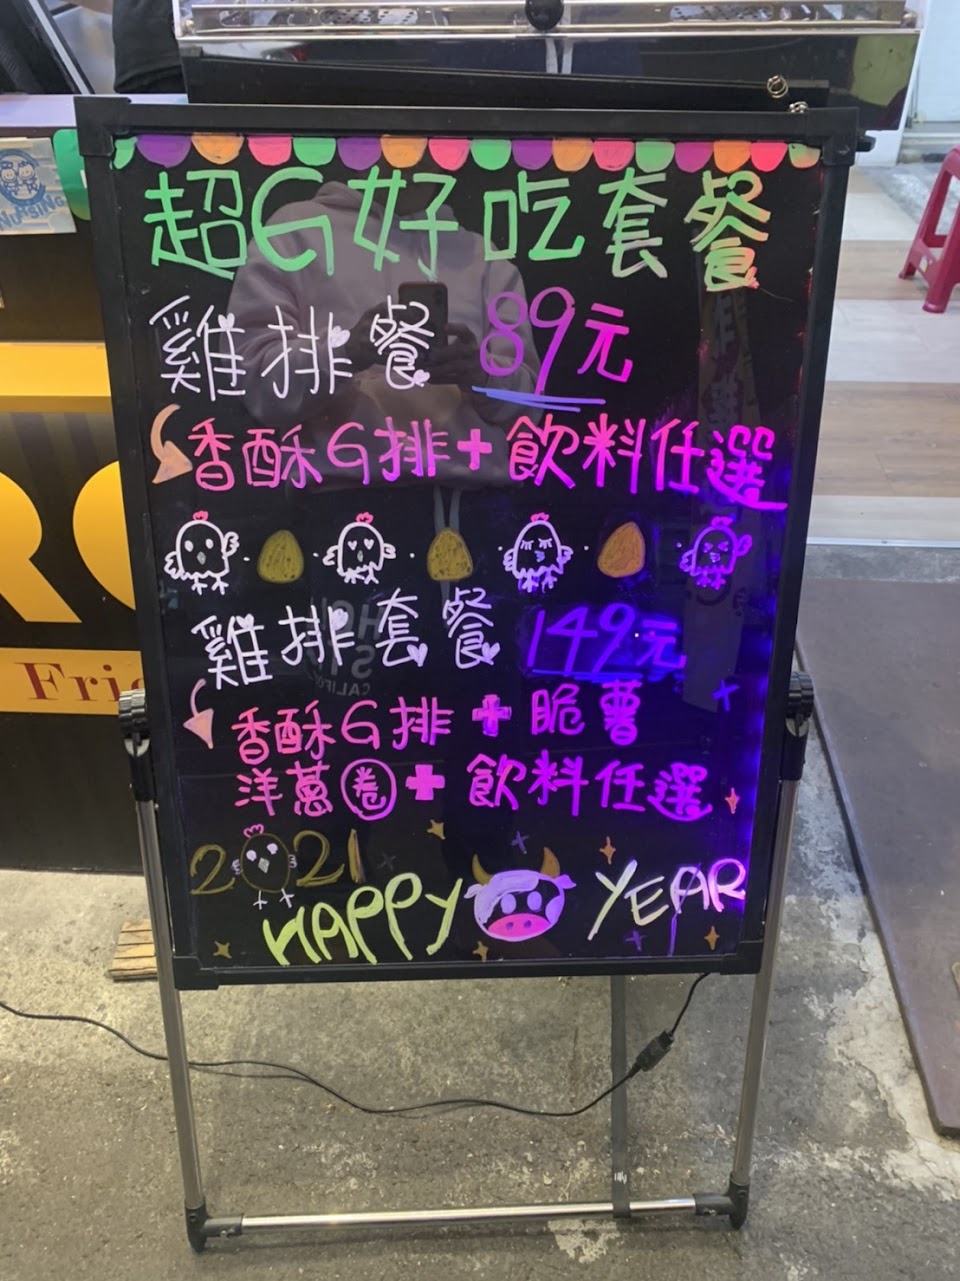 超G好吃套餐
雞排餐 89元
香酥G排+飲料任選
雞排套餐 149元
香酥G排+脆薯
洋蔥圈+飲料任選
2021
HAPPY YEAR
NURSING
Fri